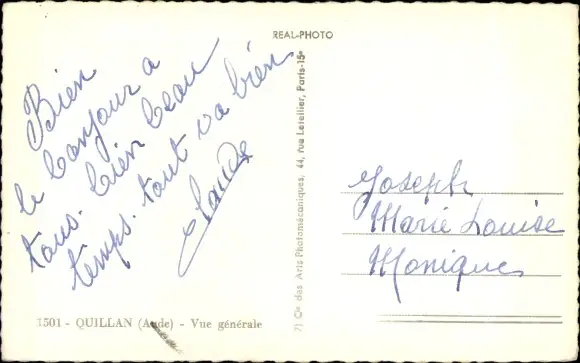 REAL-PHOTO
Bien
le bonjour a
tous. bien beau
temps. tout va bien
Claude
1501 - QUILLAN (Aude) - Vue générale
71 Cie des Arts Photomécaniques, 44, rue Letellier, Paris-15e
Joseph
Marie Louise
Monique